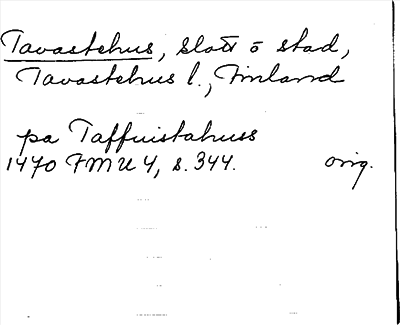 Tavastehus, slott o stad,
Tavastehus l., Finland
pa Taffuistahuss
1470 FMU 4, s. 344. orig.